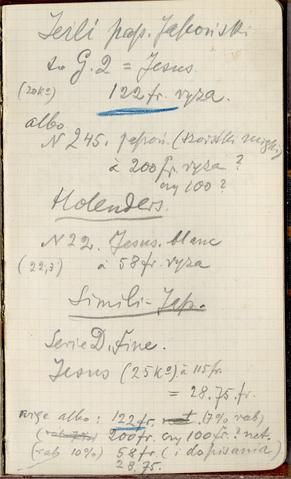 Jeśli pap. Japoński
to G.2 = Jesus.
(20K°) 122 fr. ryza.
albo
N 245. japoń. (szorstki miękki)
à 200 fr. ryza?
czy 100?
Holenders.
N 22. Jesus. blanc
(22,5) à 58 fr. ryza
Simili-Jap.
Serie D. Fine.
Jesus (25 K°) à 115 fr.
= 28.75. fr.
więc albo: 122 fr. (7% rab)
200 fr. czy 100 fr.? net.
(rab 10%) 58 fr. (i dopisania)
28,75.